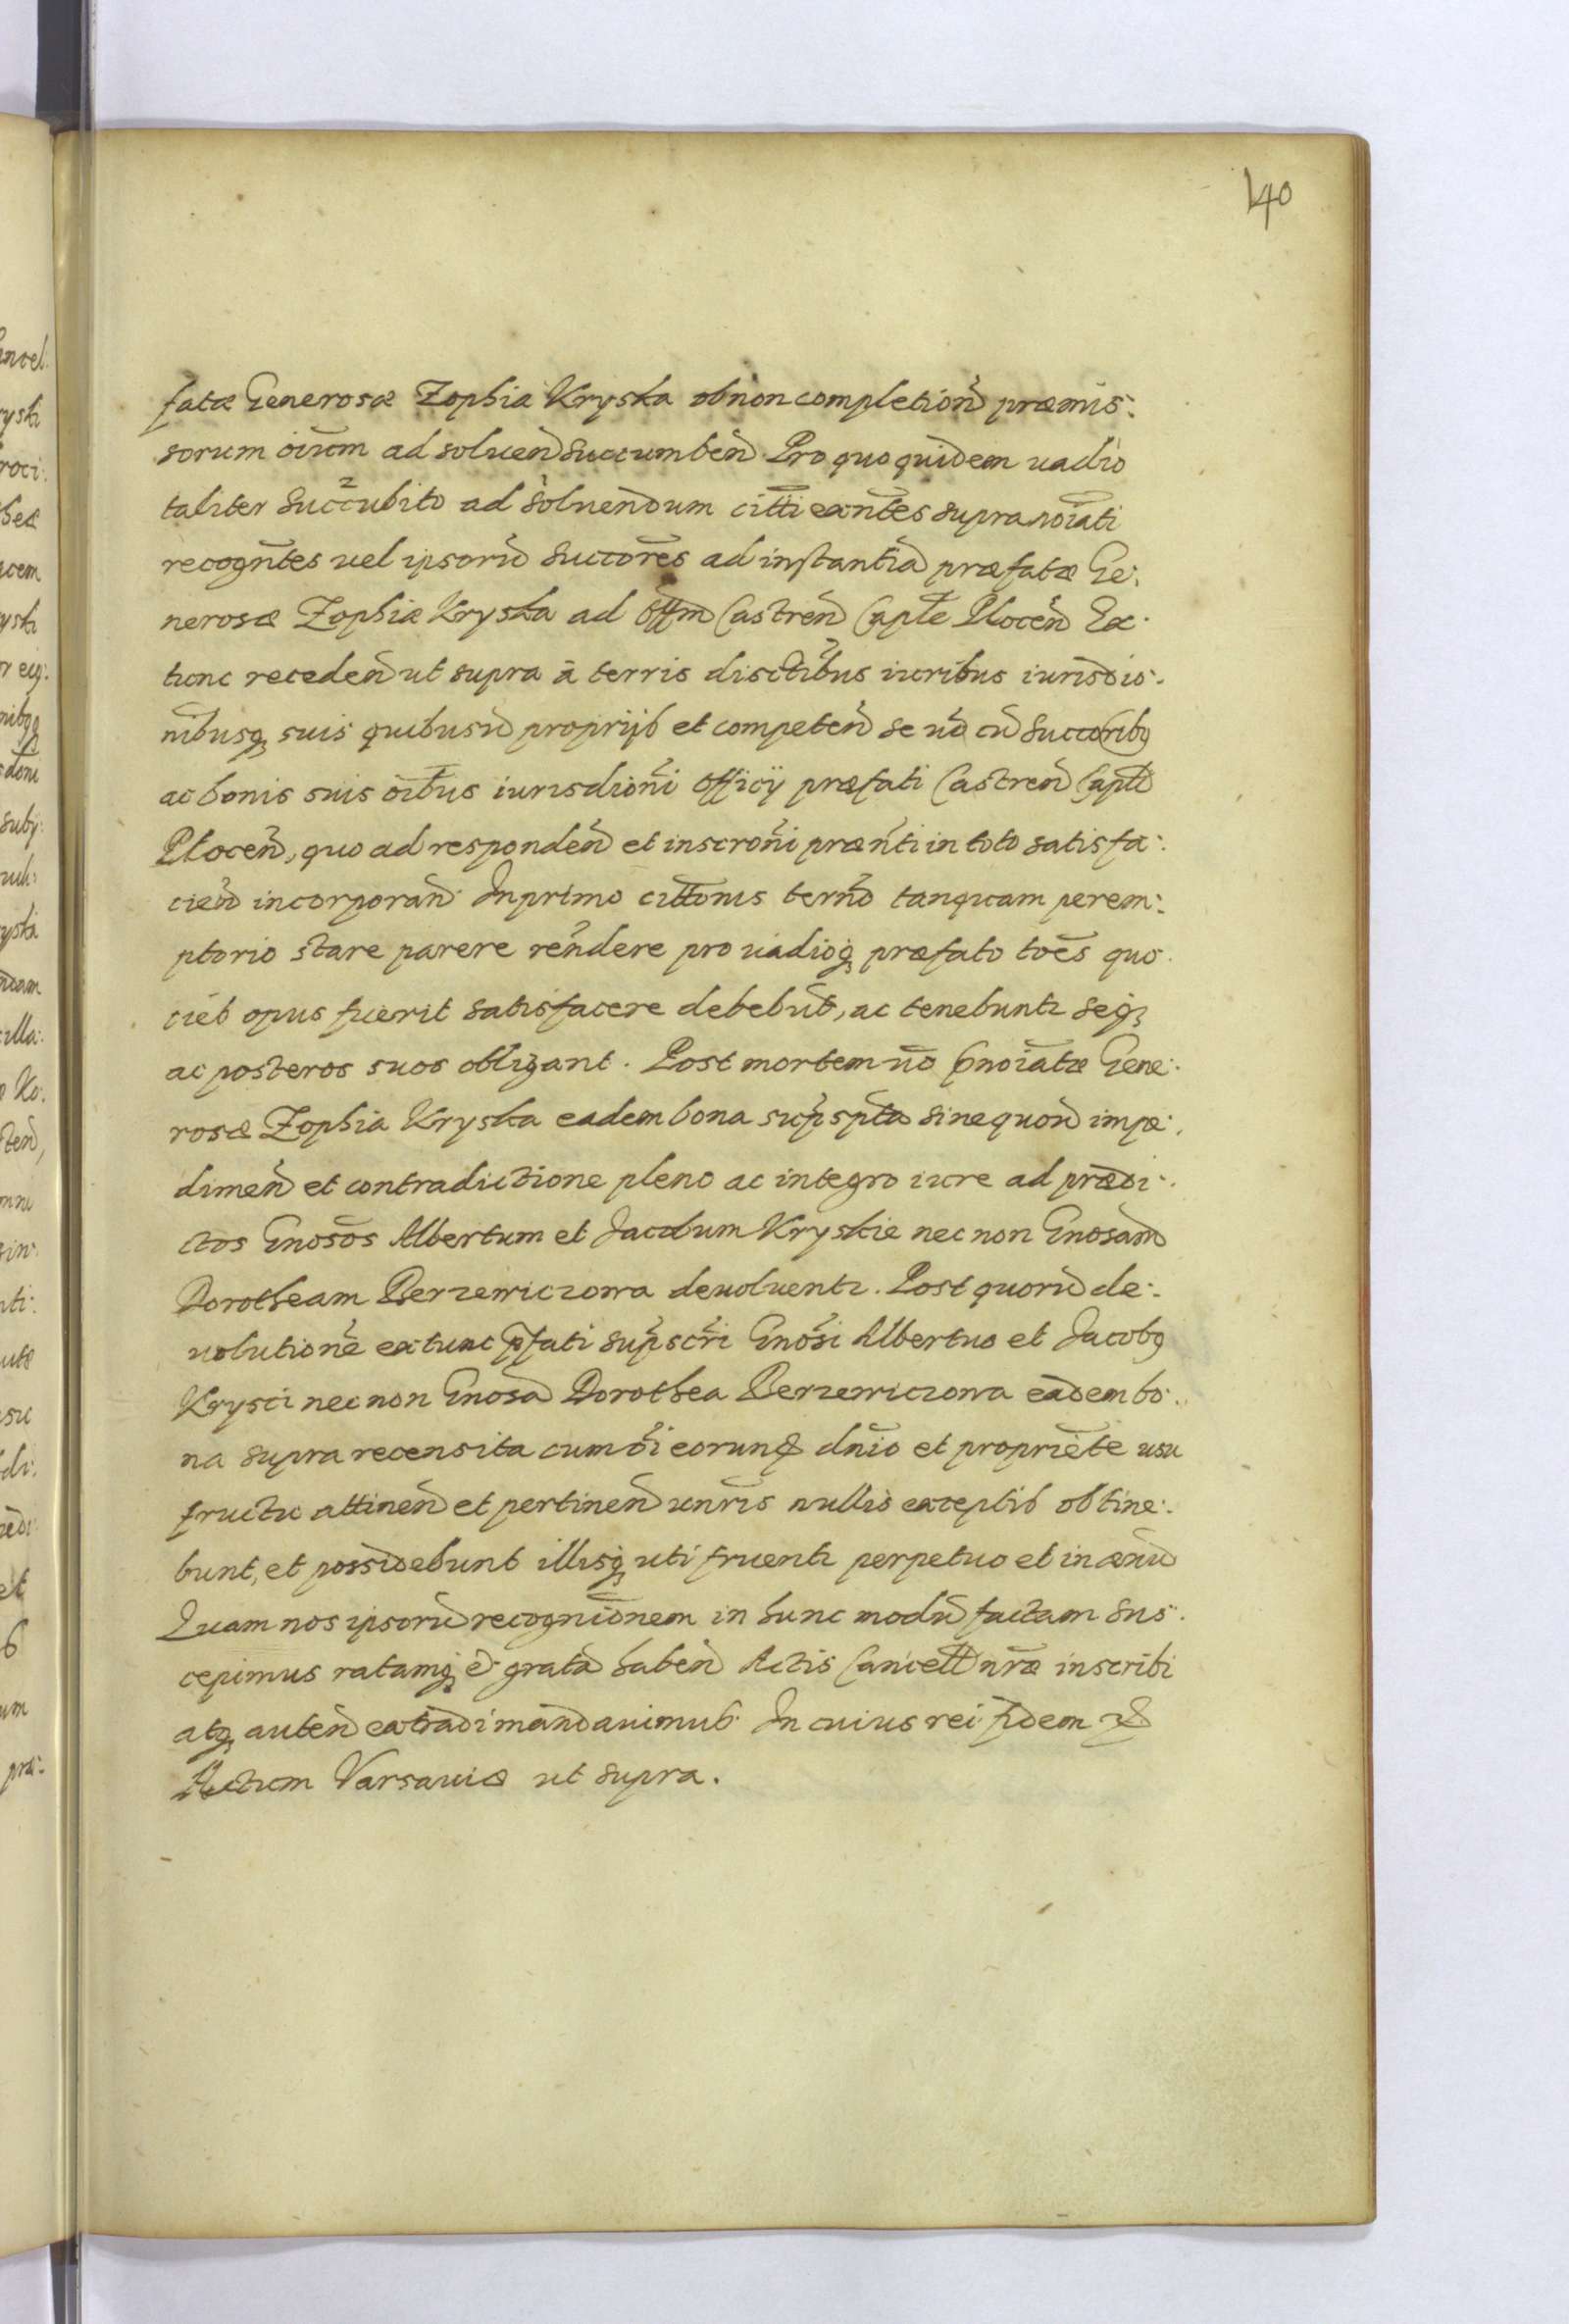 140
fatæ Generosæ Zophiæ Kryska ob non completion̄ præmis:
sorum oīum ad soluen̄ succumben̄. Pro quo quidem uadio
taliter succubito ad soluendum citti exn̄tes supranoīati
recogn̄tes uel ipsorū succōres ad instantiā præfatæ Ge:
nerosæ Zophiæ Kryska ad Offm̄ Castren̄ Capl̄e Plocen̄ Ex:
tunc receden̄ ut supra à terris disctībus iuribus iurisdio:
nibusq̨ suis quibusuis proprijs et competen̄ se unā cū succoribꝫ
ac bonis suis oībus iurisdion̄i officij præfati Castren̄ Caplē
Plocen̄, quo ad responden̄ et inscron̄i præn̄ti in toto satisfa:
cien̄ incorporan̄. In primo cittonis tern̄o tanquam perem:
ptorio stare parere ren̄dere pro uadioq̨ præfato toēs quo
ties opus fuerit satisfacere debebūt, ac tenebuntr seq̨
ac posteros suos obligant. Post mortem uō p̄noiatæ Gene:
rosæ Zophia Kryska eadem bona sup̄ spta sine quouis impe:
dimen̄ et contradictione pleno ac integro iure ad prædi:
ctos Gnosōs Albertum et Jacobum Kryskie nec non Gnosam
Dorotheam Berzewiczowa deuoluentr. Post quorū de:
uolutionē extunc p̄fati sup̄scri Gnōsi Albertus et Jacobꝫ
Krysci nec non Gnosa Dorothea Berzewiczowa eadem bo:
na supra recensita cum oī eorund̄ dn̄io et propriēte usu
fructu attinen̄ et pertinen̄ unīris nullis exceptis obtine:
bunt, et possidebunt illisq̨ uti fruentr perpetuo et in æuū
Quam nos ipsorū recognionem in hunc modū factam sus:
cepimus ratamq̨ et gratā haben̄ Actis Cancell nrā inscribi
atq̨ auten̄ extradi mandauimus. In cuius rei fidem &c
Actum Varsauiæ ut supra.